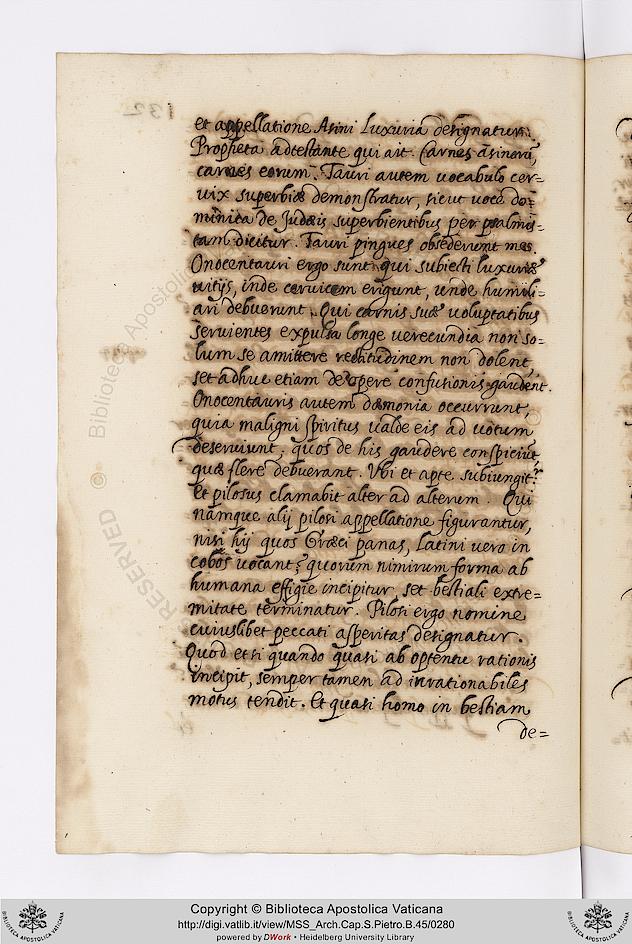 et appellatione Asini Luxuria designatur.
Propheta adtestante qui ait. Carnes asinorũ,
carnes eorum. Tauri autem vocabulo cer=
vix superbiæ demonstratur, sicut voce do=
minica de Judæis superbientibus per psalmis=
tam dicitur. Tauri pingues obsederunt me.
Onocentauri ergo sunt qui subiecti luxuriæ
vitijs, inde cervicem erigunt, unde humili=
ari debuerunt. Qui carnis suæ voluptatibus
servientes expulsa longe verecundia non so=
lum se amittere rectitudinem non dolent,
set adhuc etiam de opere confusionis gaudent.
Onocentauris autem dæmonia occurrunt,
quia maligni spiritus valde eis ad votum
deserviunt, quos de his gaudere conspiciũt,
quæ flere debuerant. Ubi et apte subiungit:
Et pilosus clamabit alter ad alterum. Qui
namque alij pilosi appellatione figurantur,
nisi hij quos Græci panas, Latini vero in
cobos vocant; quorum nimirum forma ab
humana effigie incipitur, set bestiali extre=
mitate terminatur. Pilosi ergo nomine
cuiuslibet peccati asperitas designatur.
Quod etsi quando quasi ab optentu rationis
incipit, semper tamen ad inrationabiles
motus tendit. Et quasi homo in bestiam
de=
132
Biblioteca Apostolica
RESERVED ©
Copyright © Biblioteca Apostolica Vaticana
http://digi.vatlib.it/view/MSS_Arch.Cap.S.Pietro.B.45/0280
powered by DWork • Heidelberg University Library